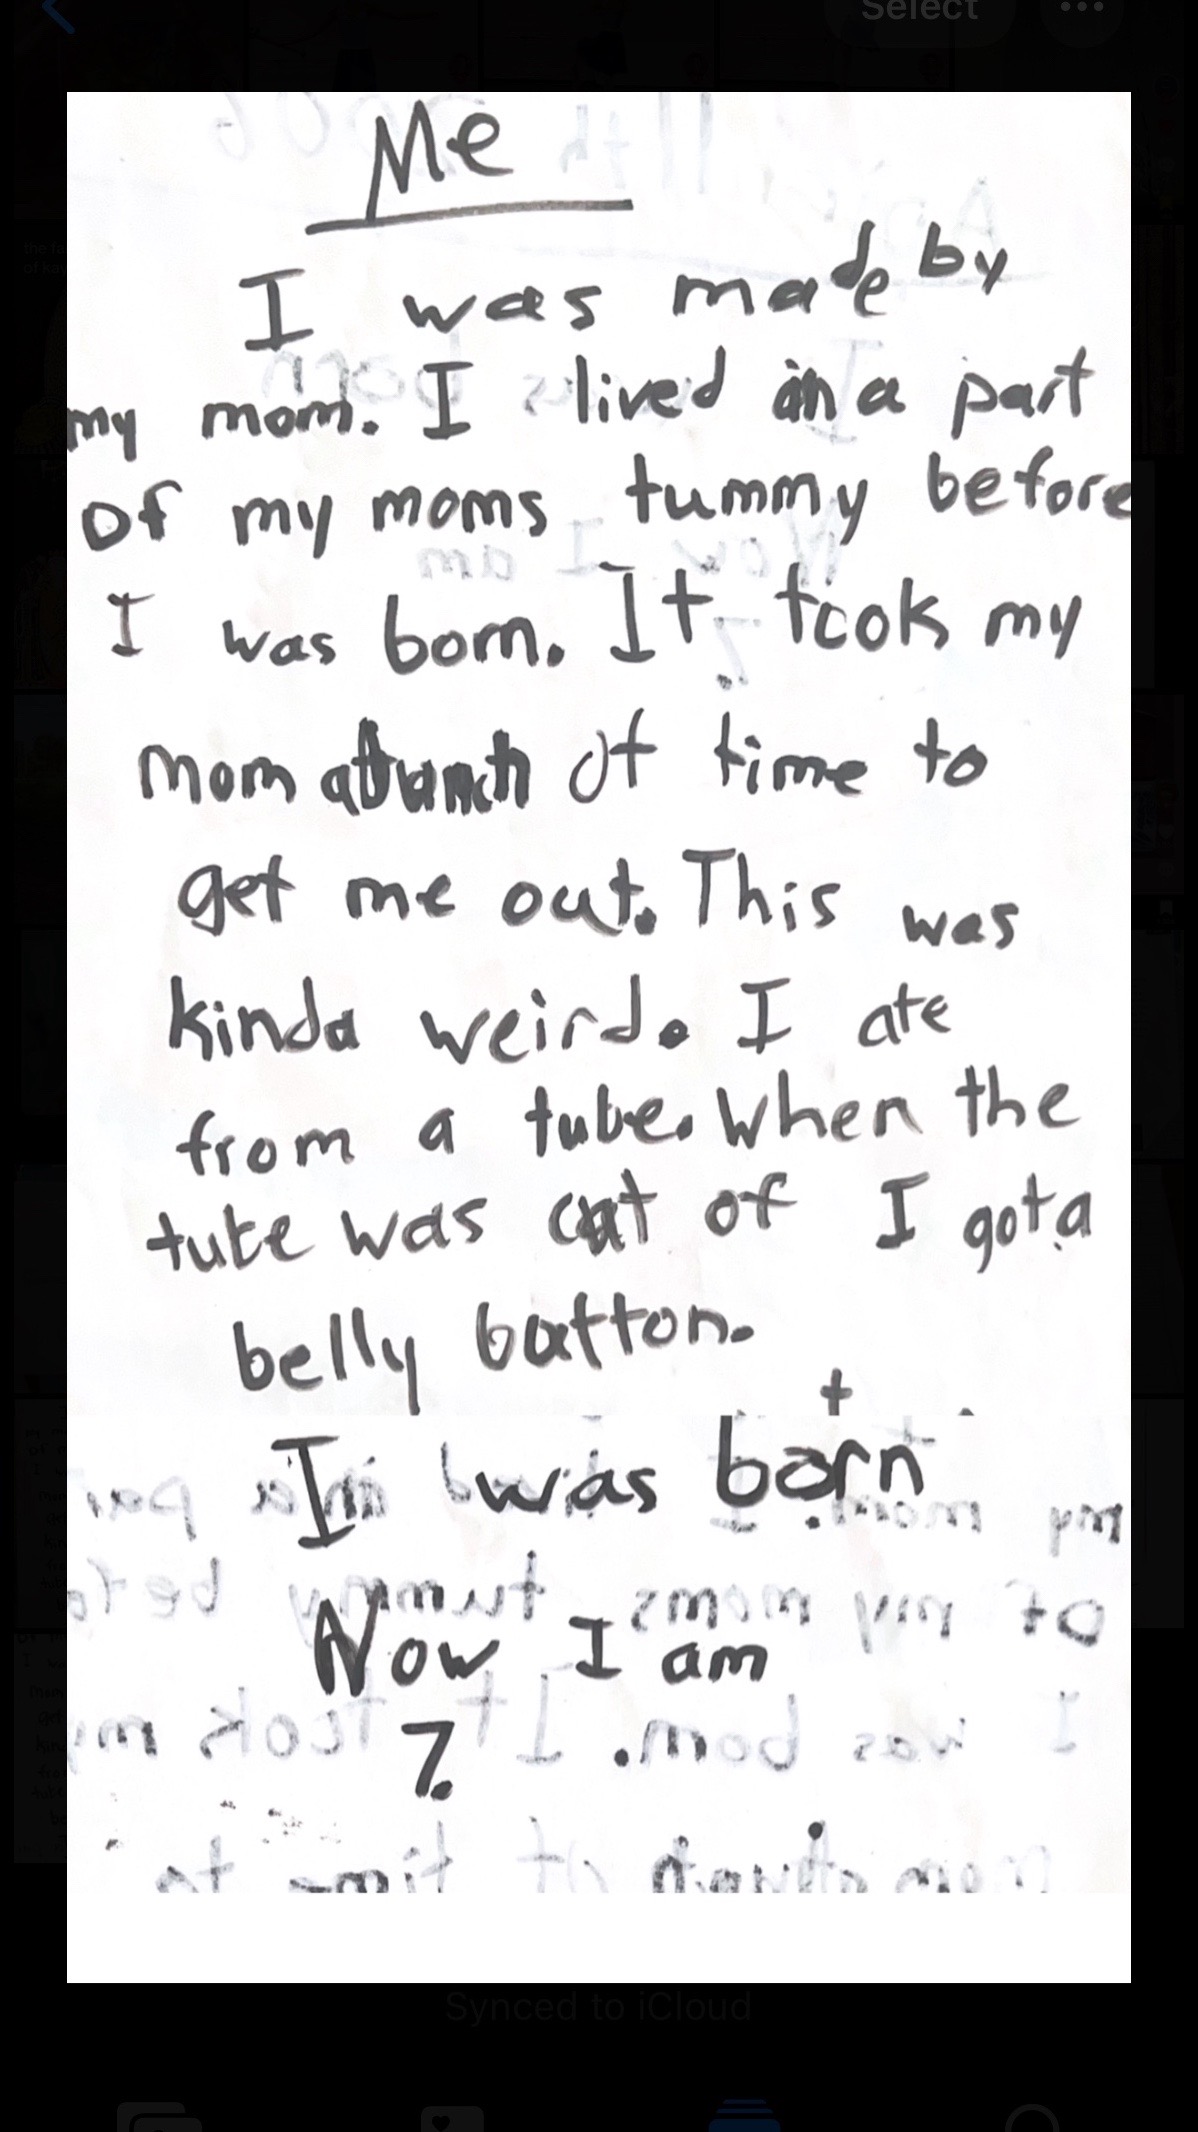 Select
Me
I was made by
my mom. I lived in a part
of my moms tummy before
I was born. It took my
mom a bunch of time to
get me out. This was
kinda weird. I ate
from a tube. When the
tube was cut of I got a
belly button.
I was born
Now I am
7.
Synced to iCloud